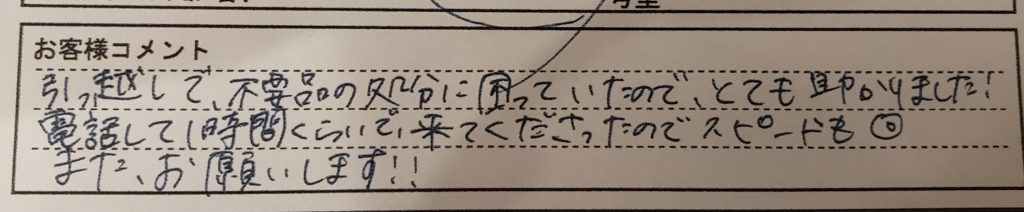 お客様コメント
引っ越しで、不要品の処分に困っていたので、とても助かりました!
電話して1時間くらいで、来てくださったのでスピードも◎
また、お願いします!!